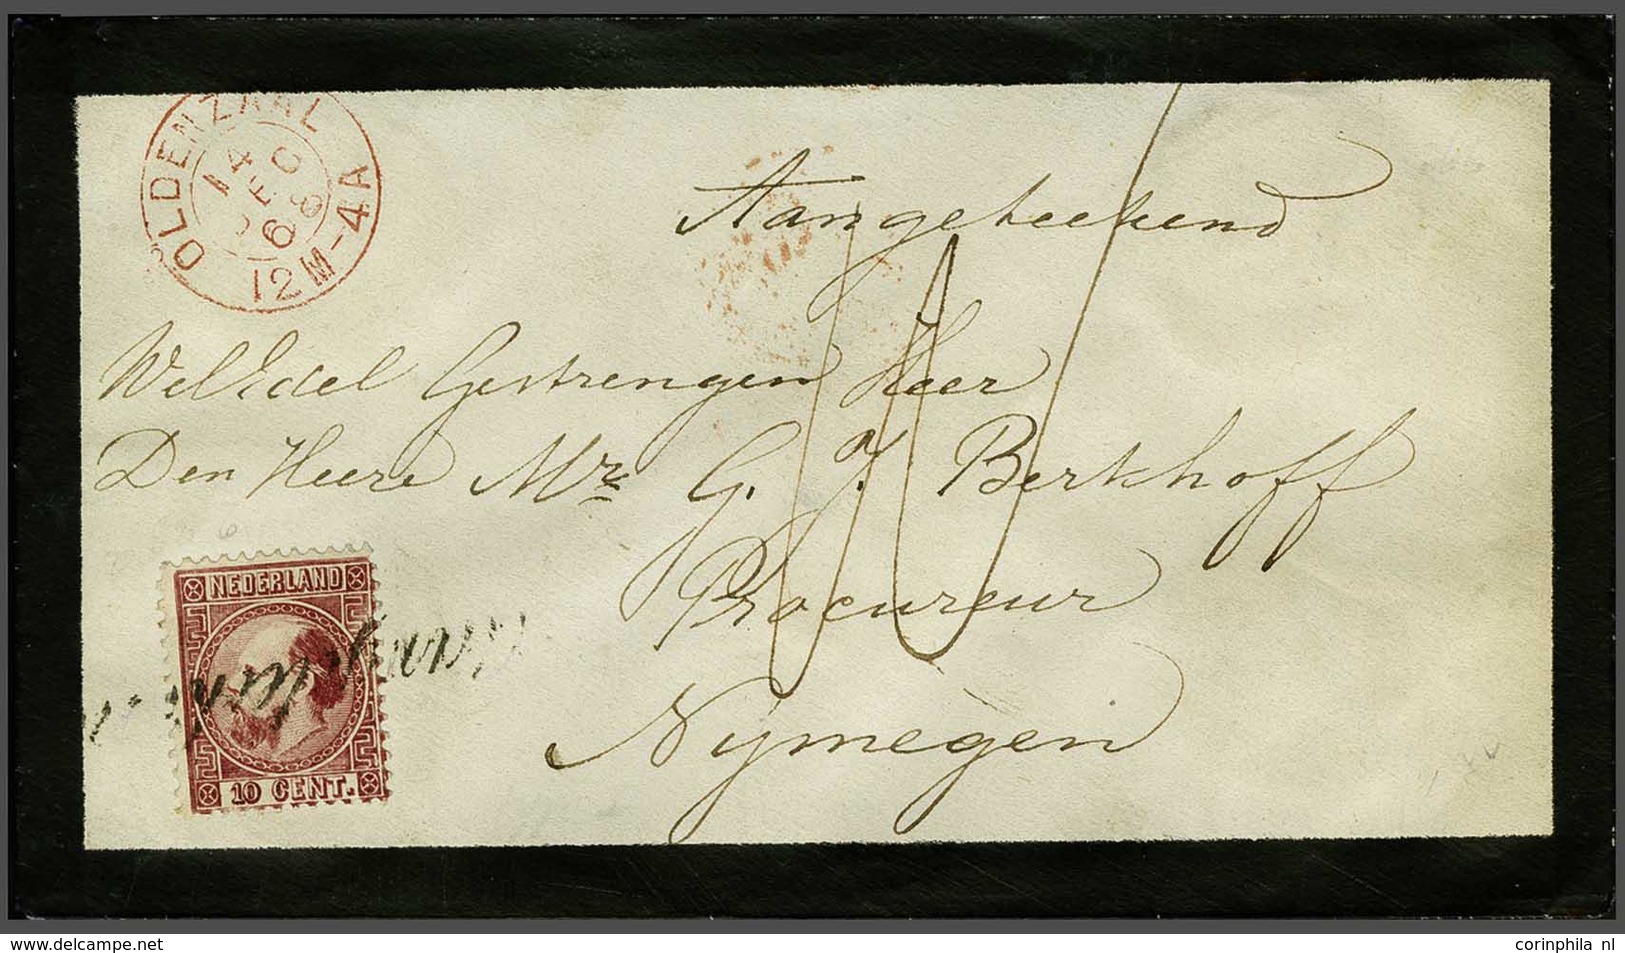 OLDENZAAL
14
DEC
68
12M-4A
Aangeteekend
WelEdel Gestrengen Heer
Den Heere Mr G. J. Berkhoff
Procureur
Nymegen
NEDERLAND
10 CENT.
www.delcampe.net
corinphila nl